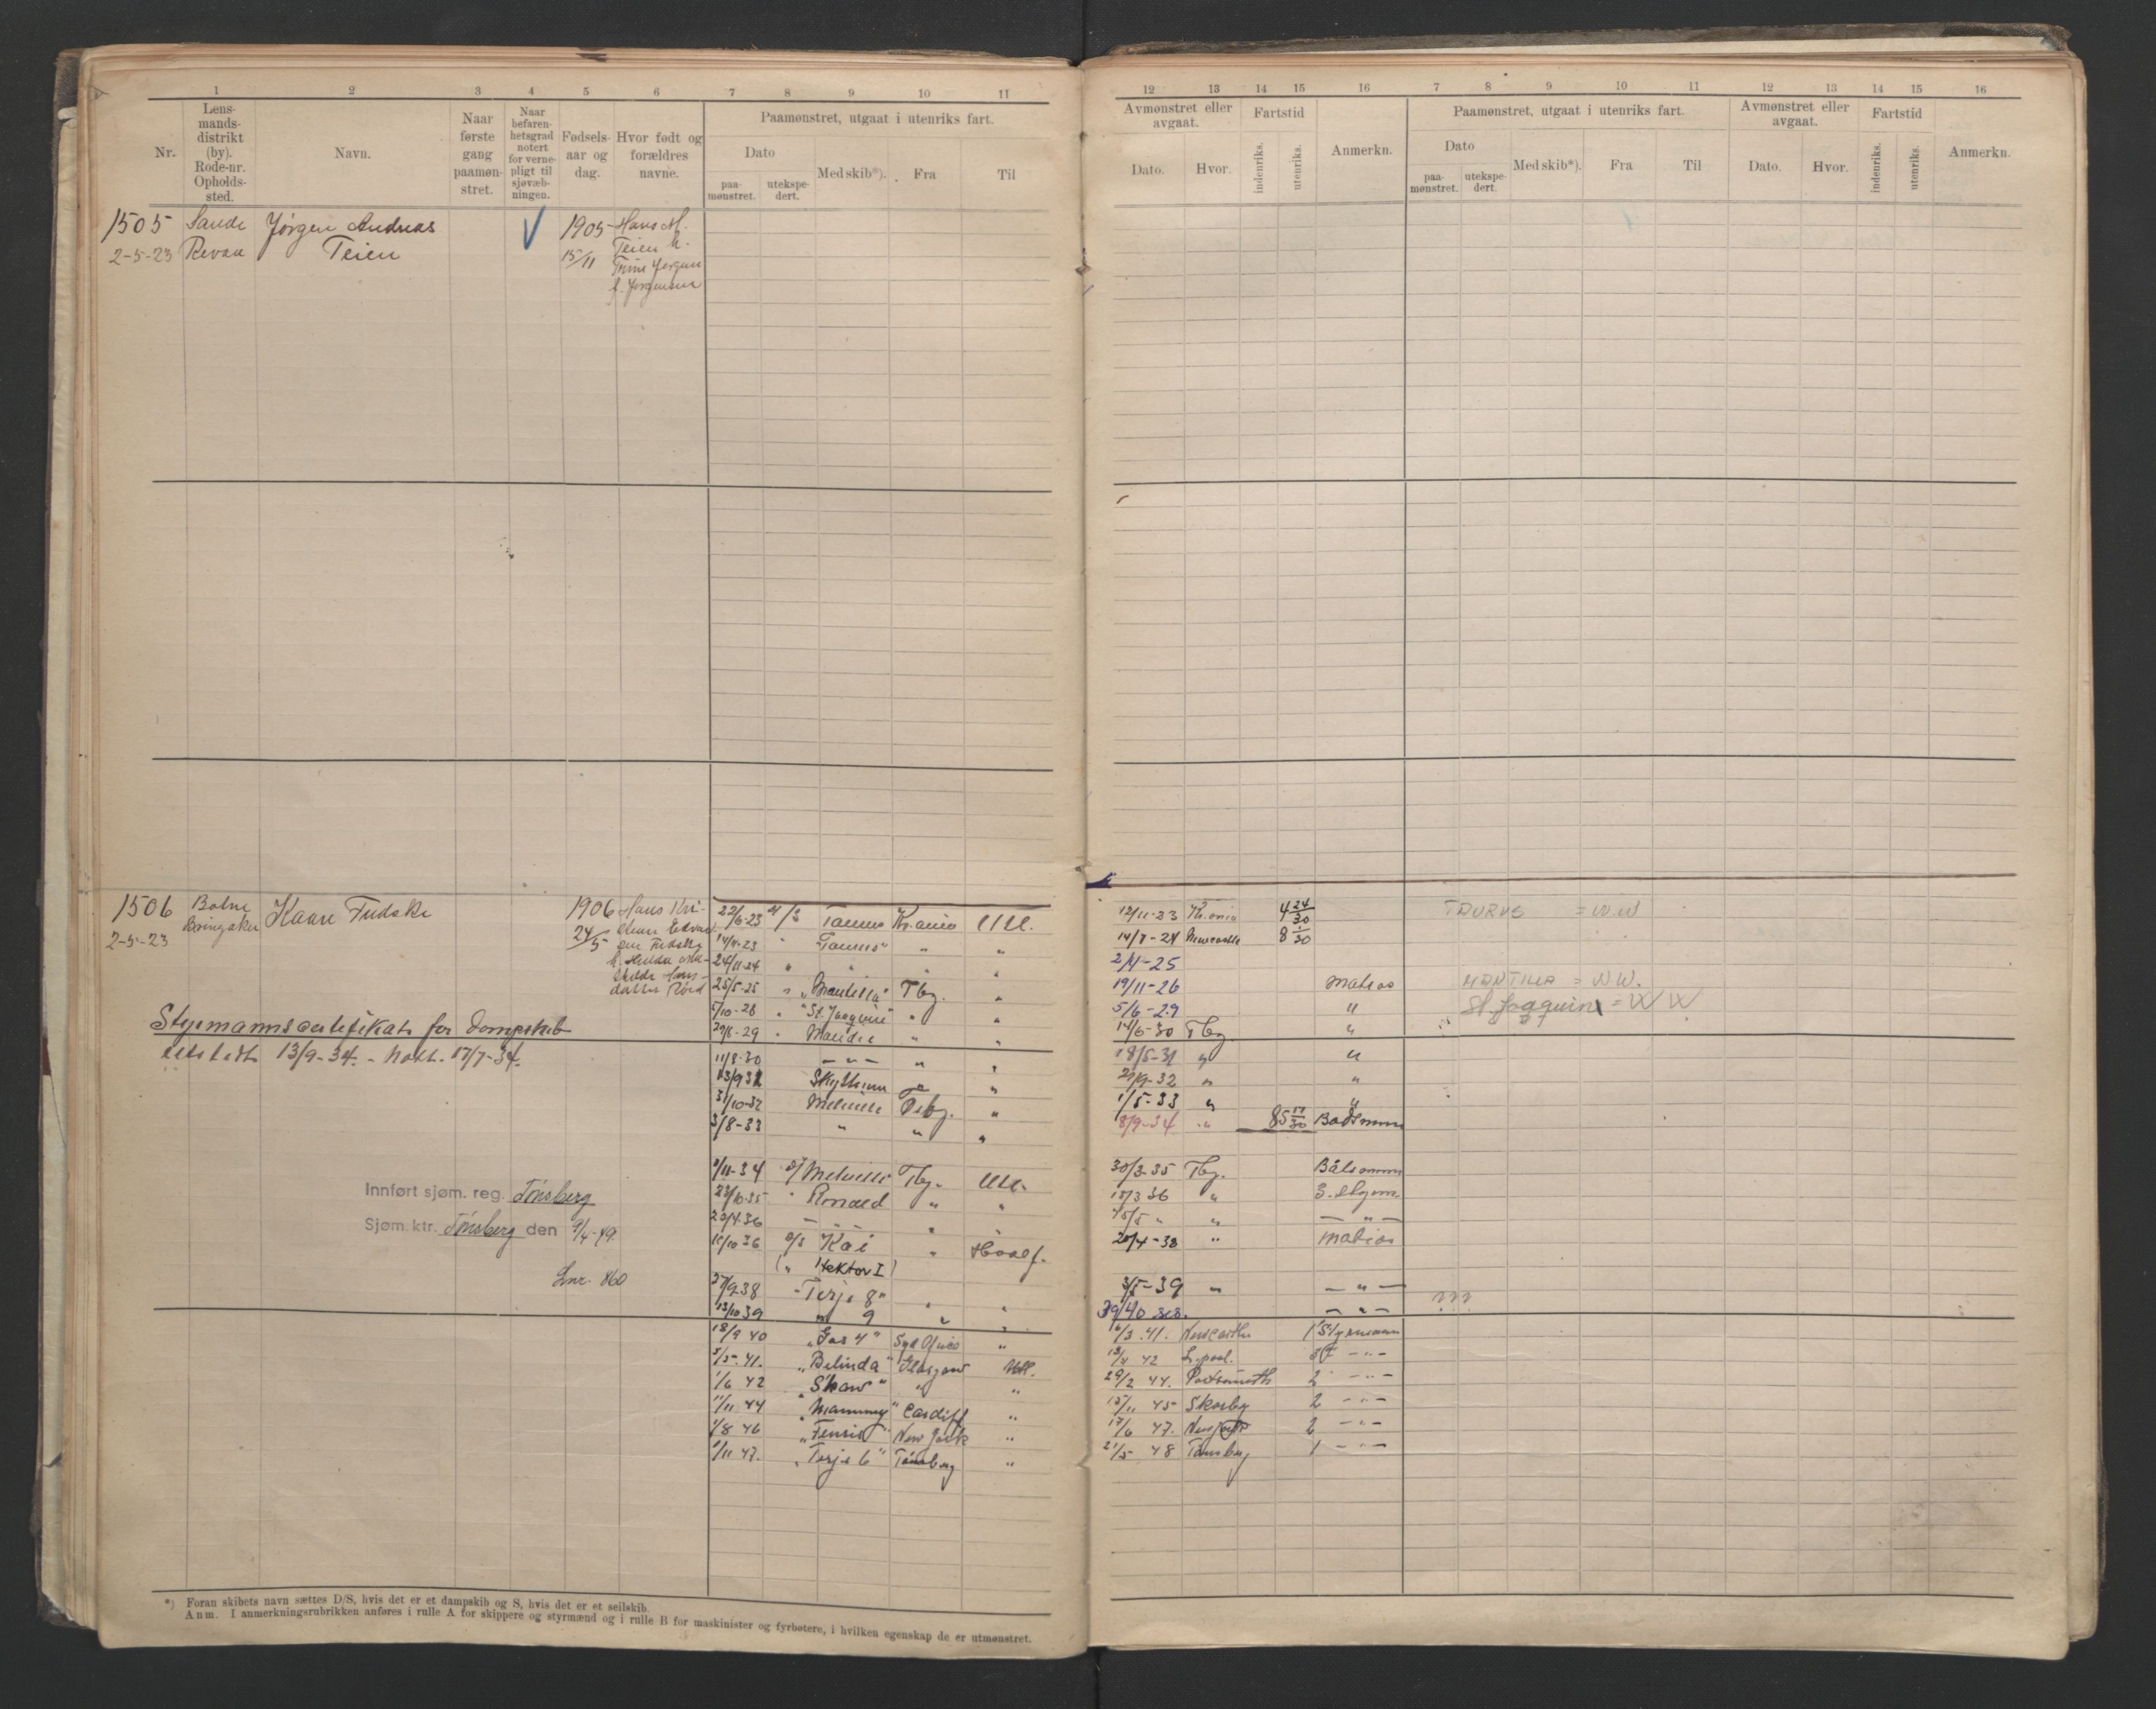 1 2 3 4 5 6 7 8 9 10 11
Nr.
Lens-
mands-
distrikt
(by).
Rode-nr.
Opholds-
sted.
Navn.
Naar
første
gang
paamøn-
stret.
Naar
befaren-
hetsgrad
notert
for verne-
pligt til
sjøvæb-
ningen.
Fødsels-
aar og
dag.
Hvor født og
forældres
navne.
Paamønstret, utgaat i utenriks fart.
Dato
paa-
mønstret.
utekspe-
dert.
Med skib*).
Fra
Til
1505 Sande Jørgen Andreas 1905 Hans M.
2-5-23 Revaa Teien 15/11 Teien h.
f. Jørgensen
1506 Botne Kaare Fudske 1906 Hans Kri-
2-5-23 24/5
22/6-23 Taurus Kr.ania Utl.
14/4-23 " Taurus" " "
24/11-24 " " " "
25/5-25 " "Mantilla" Tbg. "
5/10-28 " "St. Joaquin" " "
29/6-29 " "
11/8-30 — " — " "
13/9 31
31/10-32 Melville "
3/8-33 " " "
Styrmannscertifikat for Dampskib
utstedt 13/9-34. - Nott. 17/7-34.
1/11-34 Melville Tbg. Utl.
23/10-35 " Ronald " "
23/4-36
15/10 36 D/S Kai " Hvalf.
(" Hektor I)
27/9 38 "Terje 8" " "
13/10 39 " 9 " "
18/9 40 "Gos 4" "
5/5-41. "Belinda" Glasgow Utl.
1/6 42 "Skaw" " "
11/11 44 Cardiff "
1/8 46 New York "
1/11 47. "Terje 6" Tønsberg "
Innført sjøm. reg. Tønsberg
Sjøm. ktr. Tønsberg den 9/4-49.
Lnr. 860
*) Foran skibets navn sættes D/S, hvis det er et dampskib og S, hvis det er et seilskib.
Anm. I anmerkningsrubrikken anføres i rulle A for skippere og styrmænd og i rulle B for maskinister og fyrbøtere, i hvilken egenskap de er utmønstret.
12 13 14 15 16 7 8 9 10 11 12 13 14 15 16
Avmønstret eller
avgaat.
Dato. Hvor.
Fartstid
indenriks.
utenriks.
Anmerkn.
Paamønstret, utgaat i utenriks fart.
Dato
paa-
mønstret.
utekspe-
dert.
Med skib*).
Fra
Til
Avmønstret eller
avgaat.
Dato. Hvor.
Fartstid
indenriks.
utenriks.
Anmerkn.
12/11-23 Kr.ania 4 24/30 TAURUS = W.W
14/7-24 Newcastle 8 1/30
2/4-25
19/11-26 Matros MANTILLA = W W.
5/6-29 " St. Joaquin = W W
14/6-30 Tbg "
18/5-31 " "
29/9-32 " "
1/5-33 " "
8/9-34 " 85 17/30 Baatsmann
30/3-35 Tbg. Båtsmann
18/3 36 " 3. styrm.
15/5 " " — " —
20/4-38 " Matros
3/5-39 " — " —
39/40 ses. — " — ???
6/3 41. Newcastle 1 Styrmann
13/4 42 L.pool. — " —
29/2 44. Portsmouth 2 — " —
15/11 45 2 — " —
17/6 47. New York 2 — " —
21/5 48 Tønsberg 1 — " —